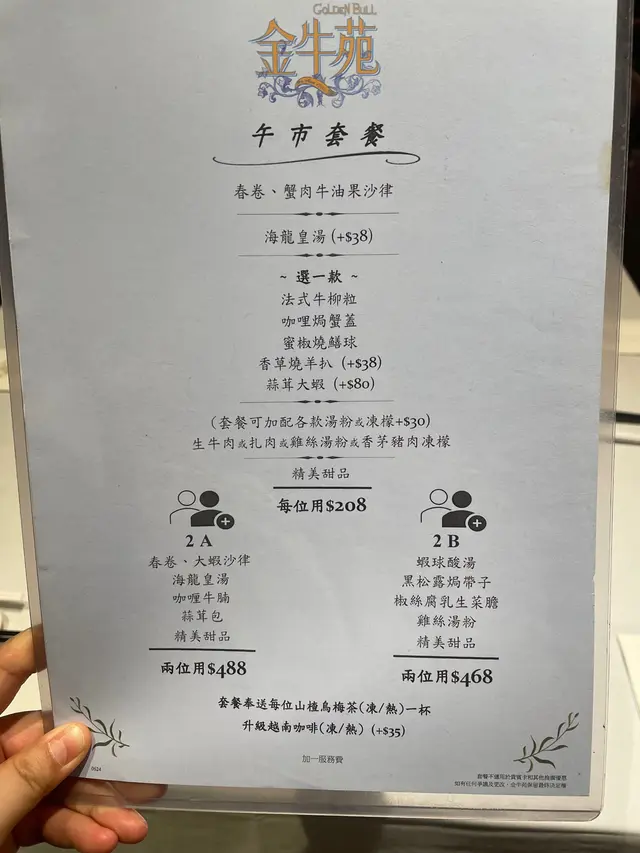 GOLDEN BULL
金牛苑
午市套餐
春卷、蟹肉牛油果沙律
海龍皇湯 (+$38)
~ 選一款 ~
法式牛柳粒
咖哩焗蟹蓋
蜜椒燒鱔球
香草燒羊扒 (+$38)
蒜茸大蝦 (+$80)
(套餐可加配各款湯粉或凍檬+$30)
生牛肉或扎肉或雞絲湯粉或香茅豬肉凍檬
精美甜品
每位用$208
2 A
春卷、大蝦沙律
海龍皇湯
咖喱牛腩
蒜茸包
精美甜品
兩位用$488
2 B
蝦球酸湯
黑松露焗帶子
椒絲腐乳生菜膽
雞絲湯粉
精美甜品
兩位用$468
套餐奉送每位山楂烏梅茶(凍/熱)一杯
升級越南咖啡(凍/熱) (+$35)
加一服務費
0424
套餐不適用於貴賓卡和其他推廣優惠
如有任何爭議及更改，金牛苑保留最終決定權